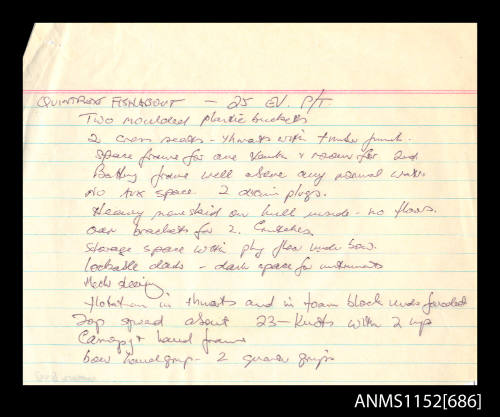 QUINTREX FISHABOUT - 25 EV. P/T
Two moulded plastic buckets
2 cross seats - thwarts with timber
space frame for one tank + room for 2nd
Battery frame well above any normal water.
No aux space. 2 drain plugs.
Heavy nonskid on hull inside - no floors.
oar brackets for 2. Crutches
storage space within ply floor under bow.
lockable dash - dash space for instruments
Mech steering
flotation in thwarts and in foam block under foredeck
Top speed about 23-Knots with 2 up
Canopy + hand frame
bow handgrip - 2 quarter grips
ANMS1152[686]